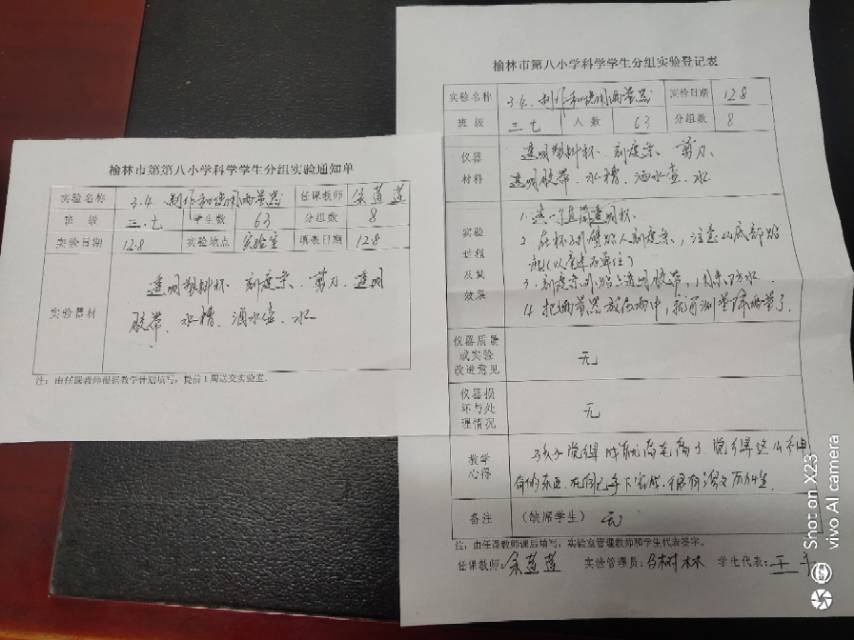 榆林市第第八小学科学学生分组实验通知单
实验名称 3.4. 制作和使用雨量器 任课教师
班 级 三.七 学生数 63 分组数 8
实验日期 12.8 实验地点 实验室 填表日期 12.8
实验器材
透明塑料杯 刻度条、剪刀、透明
胶带、水槽、洒水壶、水
注：由任课教师根据教学计划填写，提前1周送交实验室.
榆林市第八小学科学学生分组实验登记表
实验名称 3.4. 制作和使用雨量器 实验日期 12.8
班 级 三七 人 数 63 分组数 8
仪器
材料
透明塑料杯 刻度条、剪刀、
透明胶带、水槽、洒水壶、水
实验
过程
及其
效果
1. 选一个直筒透明杯.
2. 在杯子外壁贴上刻度条，注意从底部贴
起(以毫米为单位)
3. 刻度条外贴上透明胶带，用来防水.
4. 把雨量器放在雨中，就可测量降雨量了.
仪器质量
或实验
改进意见
无
仪器损
坏与处
理情况
无
教学
心得
孩子觉得
备注 (缺席学生) 无
注：由任课教师课后填写，实验室管理教师和学生代表签字。
任课教师: 实验管理员: 学生代表:
Shot on X23
vivo AI camera